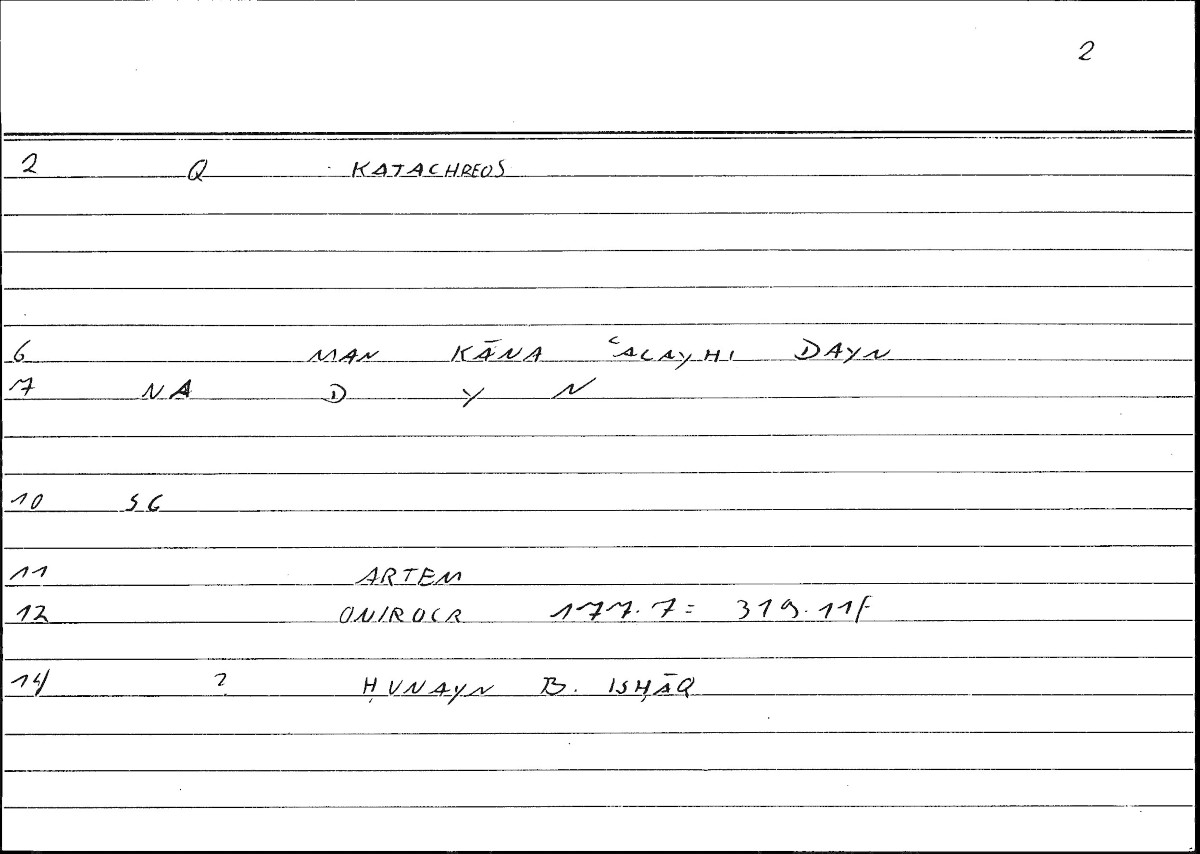 2
2 Q KATACHREOS
6 MAN KĀNA ʿALAYHI DAYN
7 NA D Y N
10 SG
11 ARTEM
12 ONIROCR 177.7 = 319.11F
14 ? ḤUNAYN B. ISḤĀQ